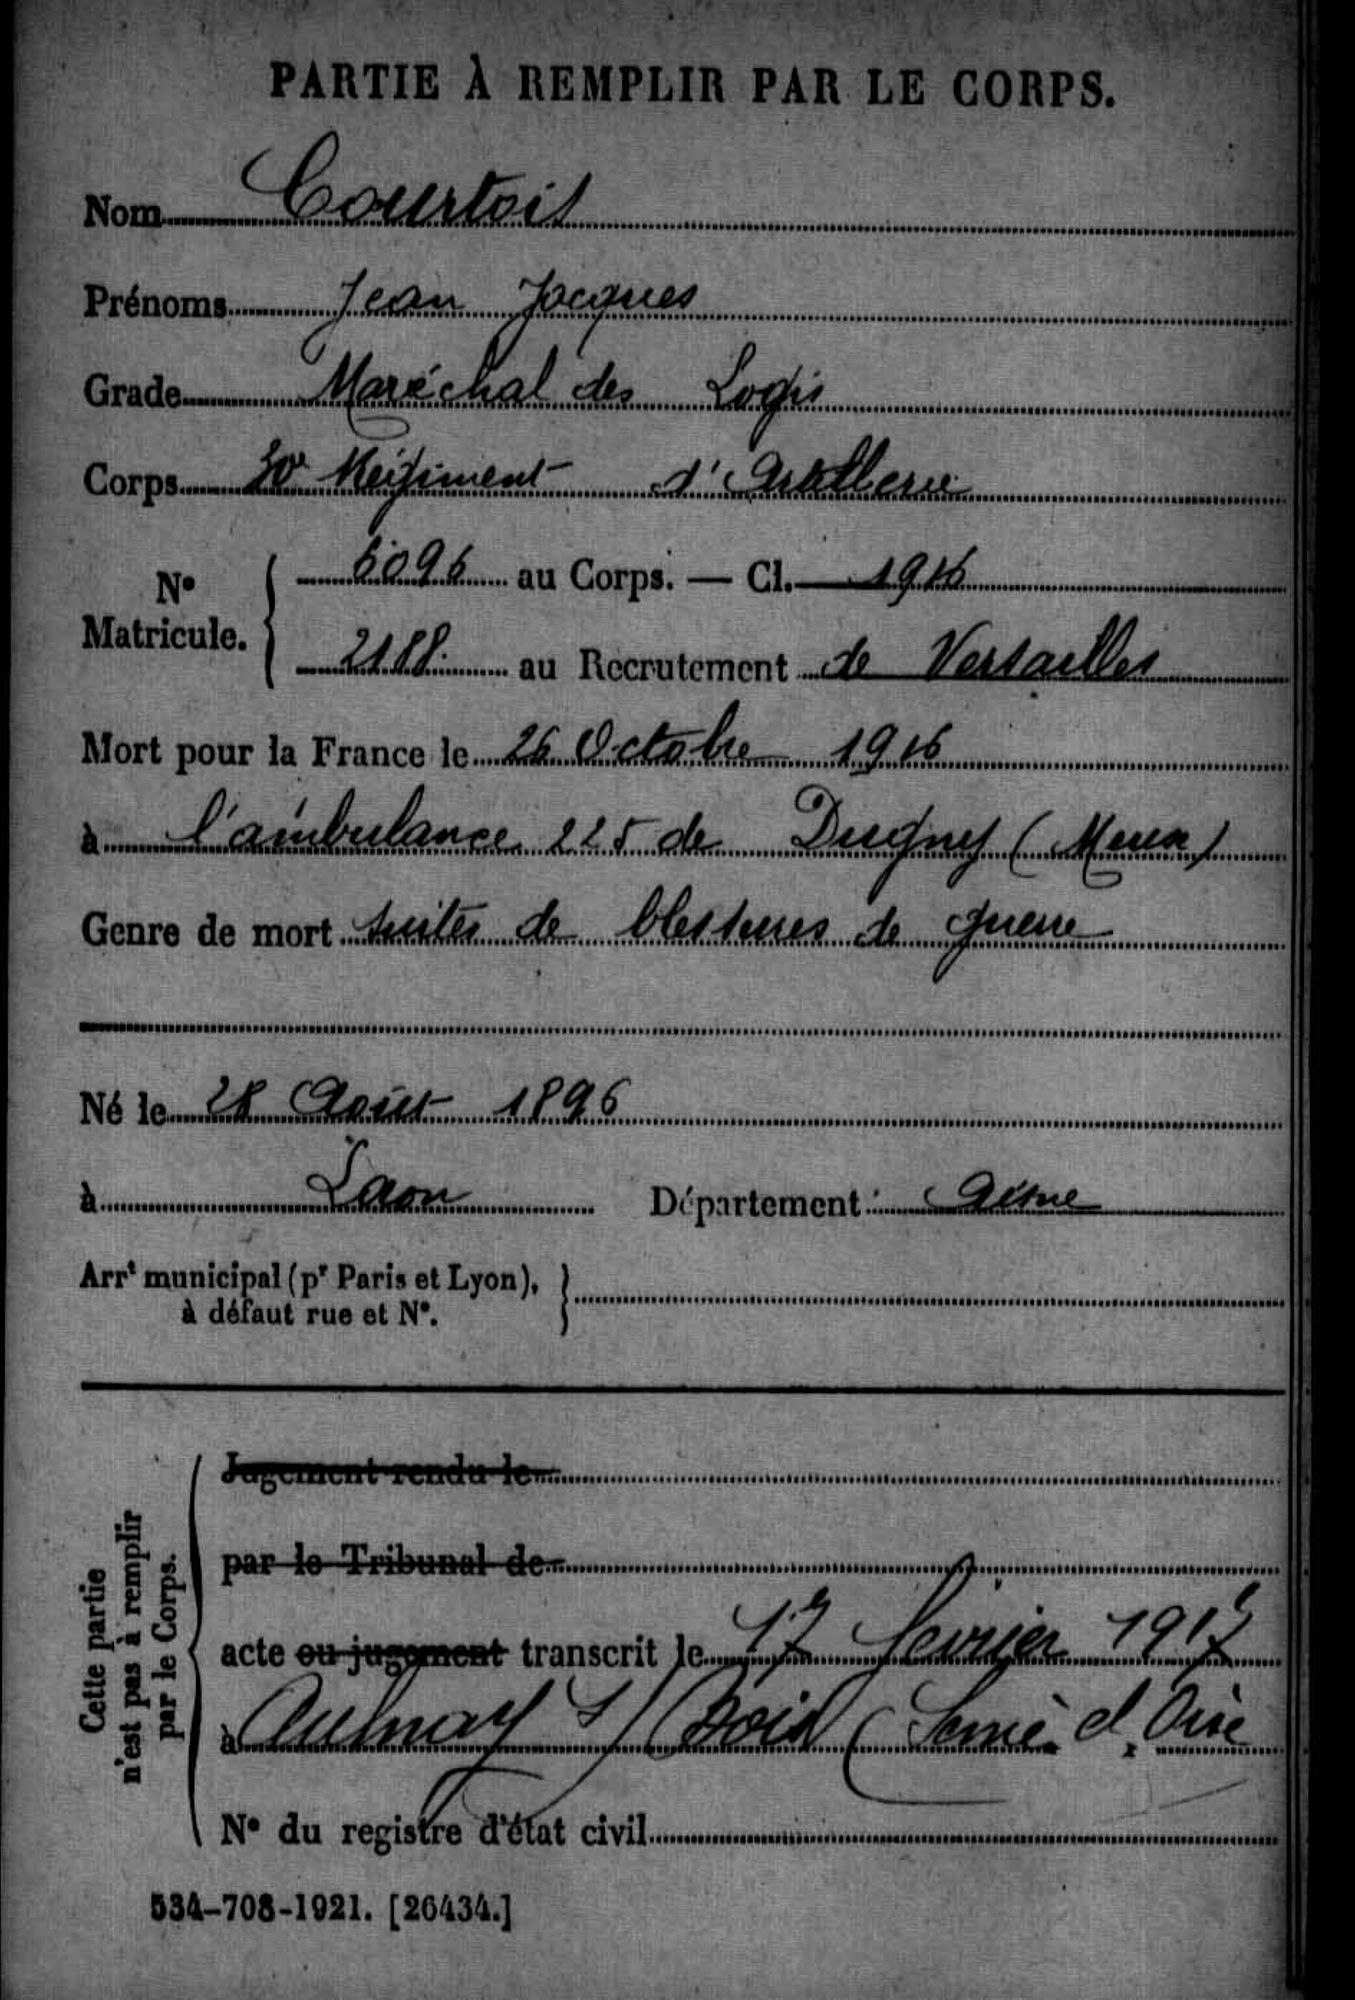 PARTIE À REMPLIR PAR LE CORPS.
Nom Courtois
Prénoms Jean Jacques
Grade Maréchal des Logis
Corps 30e Régiment d'Artillerie
No Matricule. 6096 au Corps. — Cl. 1916
2188 au Recrutement de Versailles
Mort pour la France le 26 Octobre 1916
à l'ambulance 225 de Dugny (Meuse)
Genre de mort suites de blessures de guerre
Né le 28 Août 1896
à Laon Département : Aisne
Arrt municipal (pr Paris et Lyon),
à défaut rue et No.
Cette partie
n'est pas à remplir
par le Corps.
Jugement rendu le
par le Tribunal de
acte ou jugement transcrit le 17 février 1917
à Aulnay s/ Bois (Seine et Oise
No du registre d'état civil
534-708-1921. [26434.]